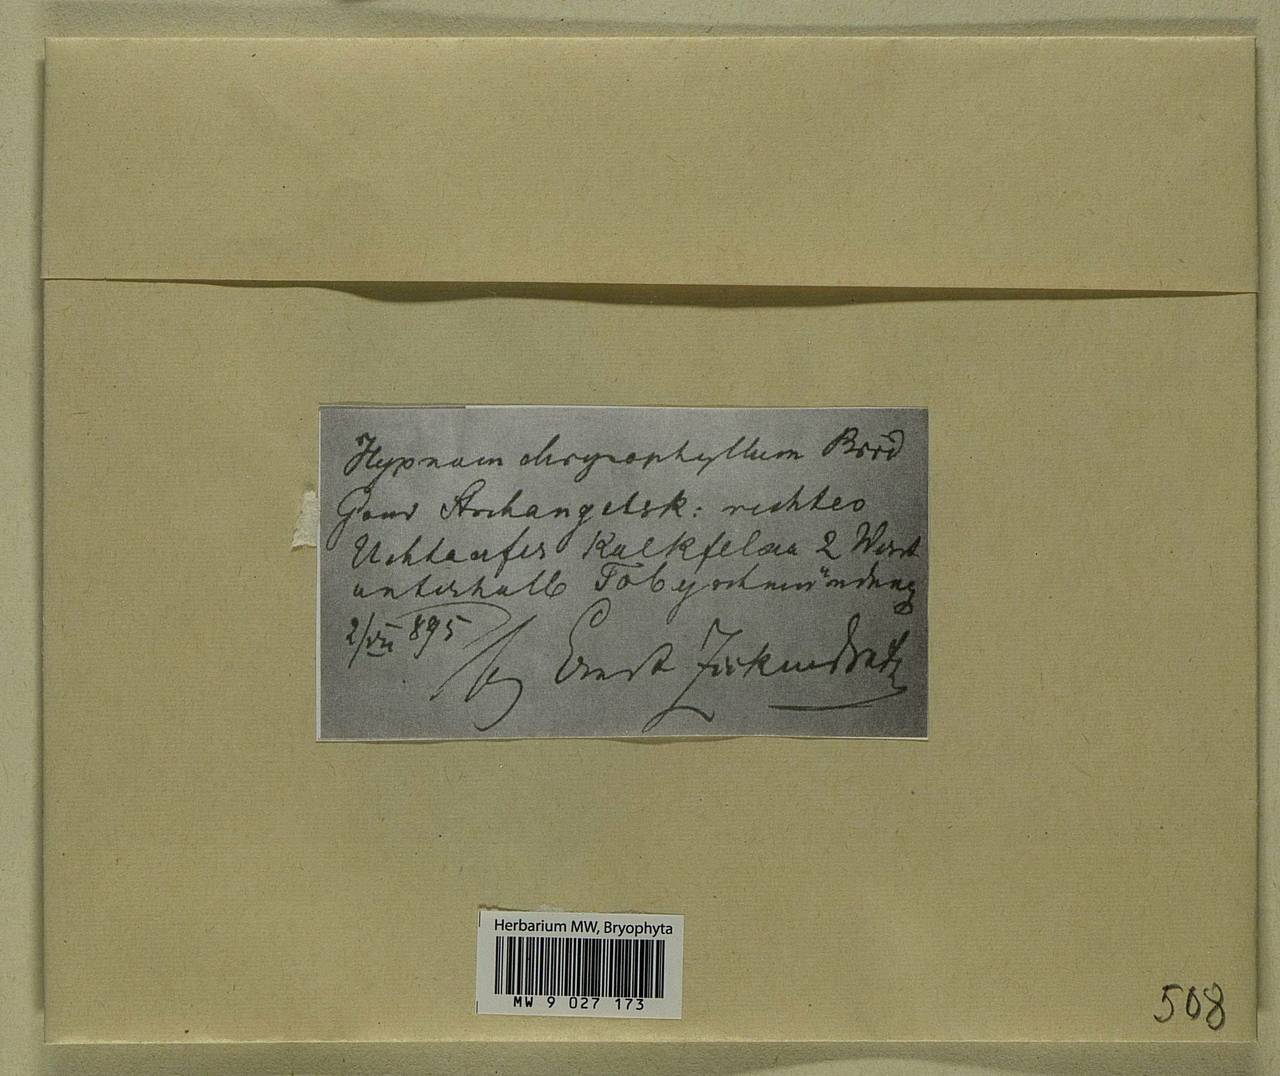 Hypnum chrysophyllum Brid
Gouv Archangelsk: rechtes
Uchtaufer Kalkfelsen 2 Werst
unterhalb Tobyschmündung
2/VII 895
leg Ernst Zickendrath
Herbarium MW, Bryophyta
MW 9 027 173
508